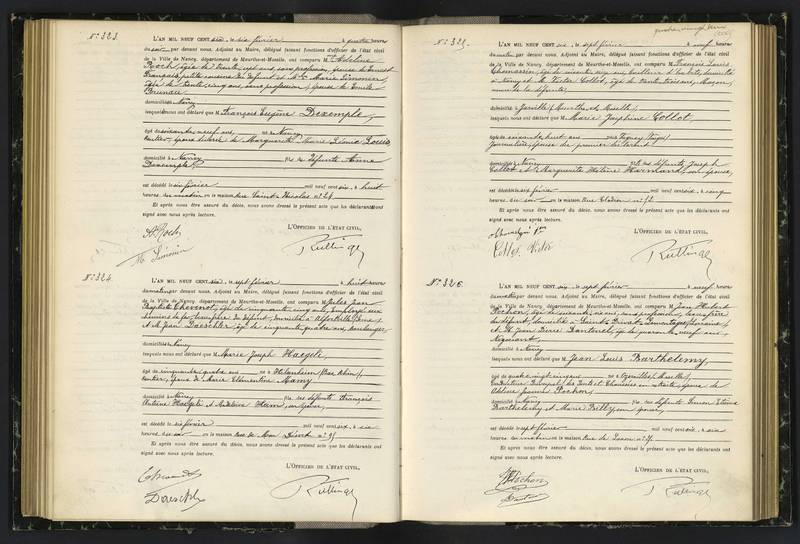 N° 323.
L'AN MIL NEUF CENT six, le six février à quatre heures
du soir, par devant nous, Adjoint au Maire, délégué faisant fonctions d'officier de l'état civil
de la Ville de Nancy, département de Meurthe-et-Moselle, ont comparu M Adeline
Roch, âgée de trente sept ans, sans profession, épouse de Ernest
François, petite cousine du défunt et Marie Simonin,
âgée de trente cinq ans, sans profession, épouse de Emile
Bruneau
domiciliés à Nancy
lesquels nous ont déclaré que M François Eugène Dexemple,
âgé de soixante neuf ans, né à Nancy
rentier, époux divorcé de Marguerite Marie Léonie Louis
domicilié à Nancy fils de défunte Anna
Dexemple
est décédé le six février mil neuf cent six, à huit
heures du matin en la maison rue Saint Nicolas n° 24
Et après nous être assuré du décès, nous avons dressé le présent acte que les déclarants ont
signé avec nous après lecture.
L'OFFICIER DE L'ÉTAT CIVIL,
A. Roch
M. Simonin
N° 324.
L'AN MIL NEUF CENT six, le sept février à huit heures
du matin, par devant nous, Adjoint au Maire, délégué faisant fonctions d'officier de l'état civil
de la Ville de Nancy, département de Meurthe-et-Moselle, ont comparu M Jules Jean
Baptiste Thevenot, âgé de cinquante cinq ans, Employé aux
chemins de fer, beau frère du défunt, domicilié à Alfortville (Seine)
et M. Jean Daeschler, âgé de cinquante quatre ans, boulanger,
domicilié à Nancy
lesquels nous ont déclaré que M Marie Joseph Haegeli
âgé de cinquante quatre ans né à Hilsenheim (Bas Rhin)
rentier, époux de Marie Clémentine Mamy
domicilié à Nancy fils de défunts François
Antoine Haegeli et Madeleine Hum, son épouse,
est décédé le six février mil neuf cent six, à six
heures du soir en la maison Rue de Mon Désert n° 95
Et après nous être assuré du décès, nous avons dressé le présent acte que les déclarants ont
signé avec nous après lecture.
L'OFFICIER DE L'ÉTAT CIVIL,
Daeschler
N° 325.
L'AN MIL NEUF CENT six, le sept février à neuf heures
du matin par devant nous, Adjoint au Maire, délégué faisant fonctions d'officier de l'état civil
de la Ville de Nancy, département de Meurthe-et-Moselle, ont comparu M François Louis
domicilié à Jarville (Meurthe et Moselle)
lesquels nous ont déclaré que M Marie Joséphine Collot,
âgée de soixante huit ans née à
Journalière, épouse du premier déclarant
domiciliée à Nancy fille de défunts Joseph
Collot et Marguerite Hélène Harmand, son épouse,
est décédée le six février mil neuf cent six, à cinq
heures du soir en la maison Rue Clodion n° 12
Et après nous être assuré du décès, nous avons dressé le présent acte que les déclarants ont
signé avec nous après lecture.
L'OFFICIER DE L'ÉTAT CIVIL,
Collot Victor
N° 326.
L'AN MIL NEUF CENT six, le sept février à neuf heures
du matin par devant nous, Adjoint au Maire, délégué faisant fonctions d'officier de l'état civil
de la Ville de Nancy, département de Meurthe-et-Moselle, ont comparu M Jean Hubert
Pochon, âgé de soixante ans, sans profession, beau frère
du défunt, domicilié à
et M. Jean Pierre âgé de quarante neuf ans,
Négociant,
domicilié à Nancy
lesquels nous ont déclaré que M Jean Louis Barthelemy,
âgé de quatre vingt cinq ans né à
Conducteur Principal des Ponts et Chaussées en retraite, époux de
Pochon,
domicilié à Nancy fils de défunts Simon Etienne
Barthelemy et Marie Billy, son épouse,
est décédé le sept février mil neuf cent six, à six
heures du matin en la maison Rue de
Et après nous être assuré du décès, nous avons dressé le présent acte que les déclarants ont
signé avec nous après lecture.
L'OFFICIER DE L'ÉTAT CIVIL,
Pochon